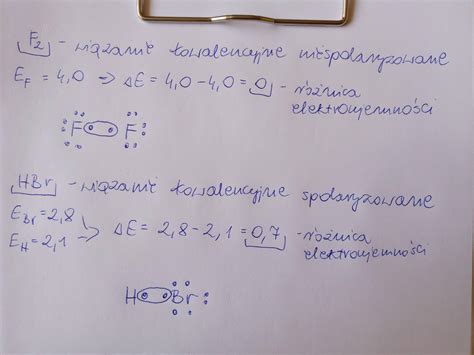 F₂ - wiązanie kowalencyjne niespolaryzowane
E_F = 4,0 => ΔE = 4,0 - 4,0 = 0 - różnica
elektroujemności
F F
HBr - wiązanie kowalencyjne spolaryzowane
E_Br = 2,8
E_H = 2,1 => ΔE = 2,8 - 2,1 = 0,7 - różnica
elektroujemności
H Br